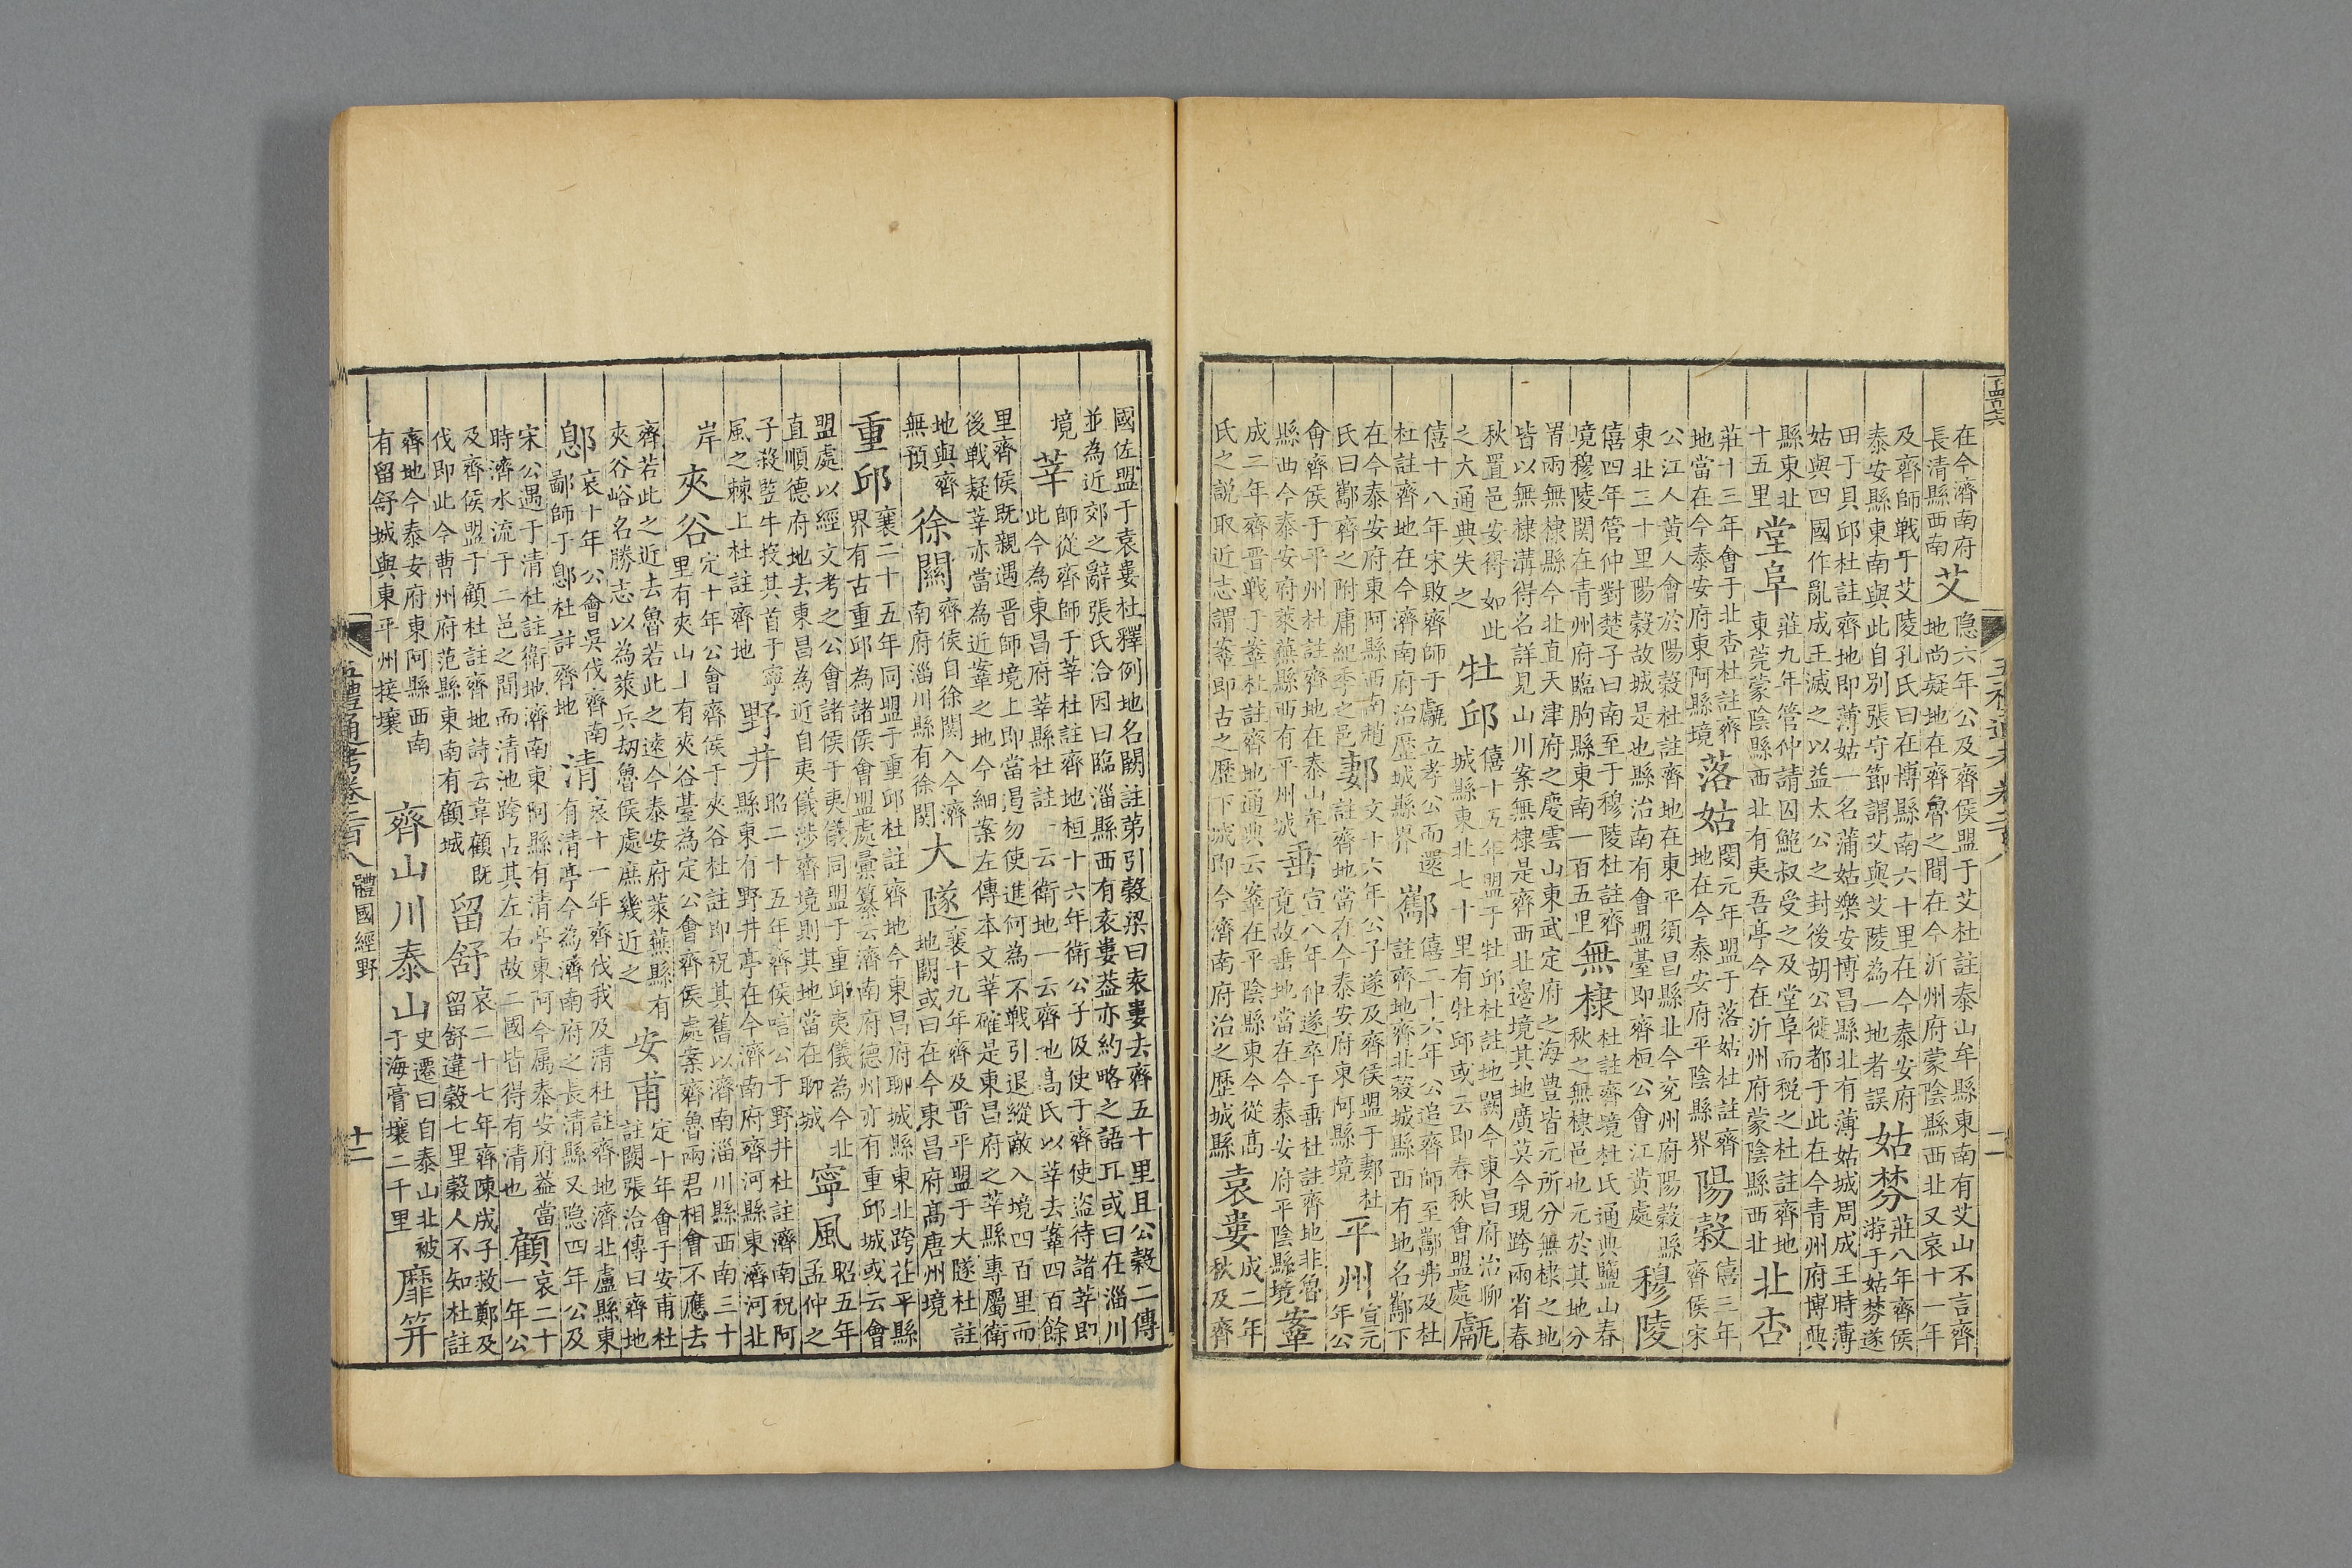 在今濟南府
長清縣西南
艾
隱六年公及齊侯盟于艾杜註泰山牟縣東南有艾山不言齊
地尚疑地在齊魯之間在今沂州府蒙陰縣西北又哀十一年
及齊師戰于艾陵孔氏曰在博縣南六十里在今泰安府
泰安縣東南與此自別張守節謂艾與艾陵為一地者誤
姑棼
莊八年齊侯
游于姑棼遂
田于貝邱杜註齊地即薄姑一名蒲姑樂安博昌縣北有薄姑城周成王時薄
姑與四國作亂成王滅之以益太公之封後胡公徙都于此在今青州府博興
縣東北
十五里
堂阜
莊九年管仲請囚鮑叔受之及堂阜而稅之杜註齊地
東莞蒙陰縣西北有夷吾亭今在沂州府蒙陰縣西北
北杏
莊十三年會于北杏杜註齊
地當在今泰安府東阿縣境
落姑
閔元年盟于落姑杜註齊
地在今泰安府平陰縣界
陽穀
僖三年
齊侯宋
公江人黃人會於陽穀杜註齊地在東平須昌縣北今兗州府陽穀縣
東北三十里陽穀故城是也縣治南有會盟臺即齊桓公會江黃處
穆陵
僖四年管仲對楚子曰南至于穆陵杜註齊
境穆陵関在青州府臨朐縣東南一百五里
無棣
杜註齊境杜氏通典鹽山春
秋之無棣邑也元於其地分
置兩無棣縣今北直天津府之慶雲山東武定府之海豊皆元所分無棣之地
皆以無棣溝得名詳見山川案無棣是齊西北邊境其地廣莫今現跨兩省春
秋置邑安得如此
之大通典失之
牡邱
僖十五年盟于牡邱杜註地闕今東昌府治聊
城縣東北七十里有牡邱或云即春秋會盟處
甗
僖十八年宋敗齊師于甗立孝公而還
杜註齊地在今濟南府治歷城縣界
酅
僖二十六年公追齊師至酅弗及杜
註齊地齊北穀城縣西有地名酅下
在今泰安府東阿縣西南趙
氏曰酅齊之附庸紀季之邑
郪
文十六年公子遂及齊侯盟于郪杜
註齊地當在今泰安府東阿縣境
平州
宣元
年公
會齊侯于平州杜註齊地在泰山牟
縣西今泰安府萊蕪縣西有平州城
垂
宣八年仲遂卒于垂杜註齊地非魯
竟故垂地當在今泰安府平陰縣境
鞌
成二年齊晉戰于鞌杜註齊地通典云鞌在平陰縣東今從高
氏之說取近志謂鞌即古之歷下城即今濟南府治之歷城縣
袁婁
成二年
秋及齊
國佐盟于袁婁杜釋例地名闕註苐引穀梁曰袁婁去齊五十里且公穀二傳
並為近郊之辭張氏洽因曰臨淄縣西有袁婁葢亦約略之語爾或曰在淄川
境
莘
師從齊師于莘杜註齊地桓十六年衛公子伋使于齊使盜待諸莘即
此今為東昌府莘縣杜註一云衛地一云齊地高氏以莘去鞌四百餘
里齊侯既親遇晋師境上即當渴勿使進何為不戰引退縱敵入境四百里而
後戰疑莘亦當為近鞌之地今細案左傳本文莘確是東昌府之莘縣專屬衛
地與齊
無預
徐關
齊侯自徐関入今濟
南府淄川縣有徐関
大隧
襄十九年齊及晋平盟于大隧杜註
地闕或曰在今東昌府高唐州境
重邱
襄二十五年同盟于重邱杜註齊地今東昌府聊城縣東北跨茌平縣
界有古重邱為諸侯會盟處彙纂云濟南府德州亦有重邱城或云會
盟處以經文考之公會諸侯于夷儀同盟于重邱夷儀為今北
直順德府地去東昌為近自夷儀涉齊境則其地當在聊城
寧風
昭五年
孟仲之
子殺豎牛投其首于寧
風之棘上杜註齊地
野井
昭二十五年齊侯唁公于野井杜註濟南祝阿
縣東有野井亭在今濟南府齊河縣東濟河北
岸
夾谷
定十年公會齊侯于夾谷杜註即祝其舊以濟南淄川縣西南三十
里有夾山上有夾谷臺為定公會齊侯處案齊魯兩君相會不應去
齊若此之近去魯若此之遠今泰安府萊蕪縣有
夾谷峪名勝志以為萊兵刼魯侯處庶幾近之
安甫
定十年會于安甫杜
註闕張洽傳曰齊地
鄎
哀十年公會吳伐齊南
鄙師于鄎杜註齊地
清
哀十一年齊伐我及清杜註齊地濟北盧縣東
有清亭今為濟南府之長清縣又隱四年公及
宋公遇于清杜註衛地濟南東阿縣有清亭東阿今属泰安府葢當
時濟水流于二邑之間而清池跨占其左右故二國皆得有清也
顧
哀二十
一年公
及齊侯盟于顧杜註齊地詩云韋顧既
伐即此今曹州府范縣東南有顧城
留舒
哀二十七年齊陳成子救鄭及
留舒違穀七里穀人不知杜註
齊地今泰安府東阿縣西南
有留舒城與東平州接壤
齊山川泰山
史遷曰自泰山北被
于海膏壤二千里
靡笄
五禮通考卷二百八
體國經野
十二